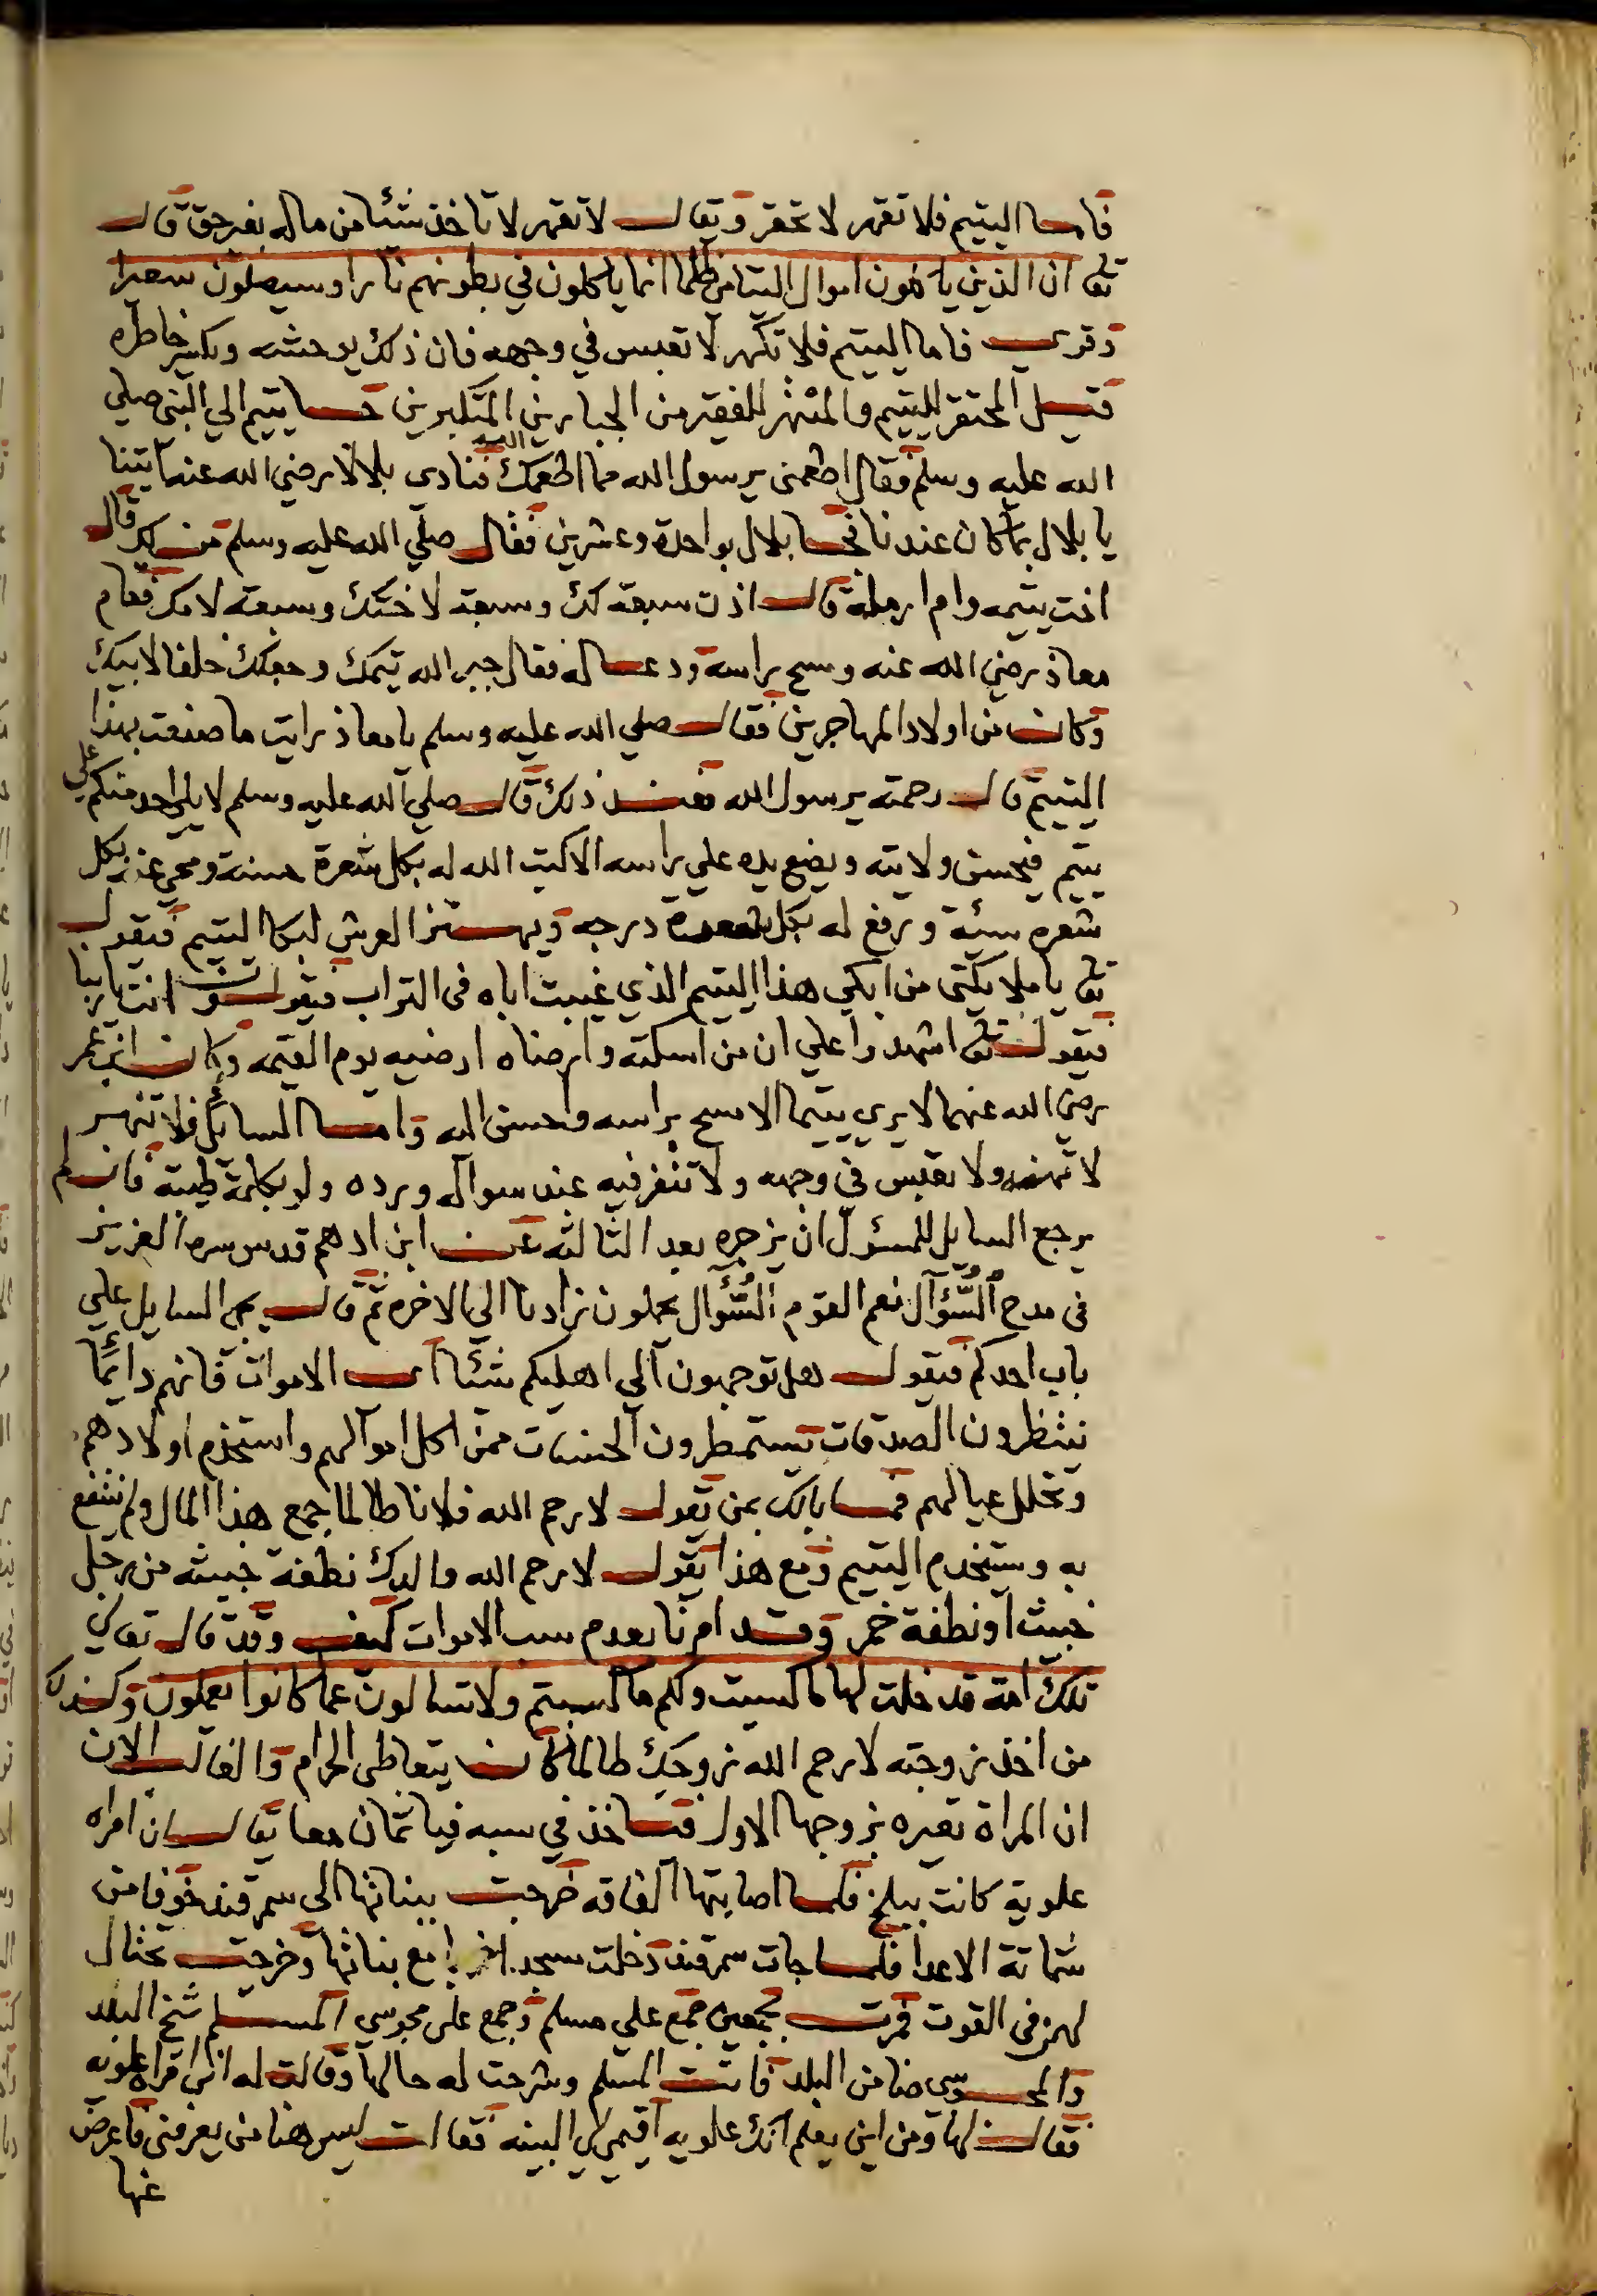 فاما اليتيم فلا تقهر لا تحقر ويقال لا تقهر لا تاخذ شئا من ماله بغير حق قال
تع ان الذين ياكلون اموال اليتامى ظلما انما ياكلون في بطونهم نارا وسيصلون سعيرا
وقرى فاما اليتيم فلا تكهر لا تعبس في وجهه فان ذلك يوحشه ويكسر خاطره
قيل المحتقر لليتيم والمنهر للفقير من الجبارين المتكبرين جا يتيم الي النبى صلي
الله عليه وسلم فقال اطعمنى يرسول الله مما اطعمك الله فنادي بلالا رضي الله عنه ايتنا
يا بلال بما كان عندنا فجا بلال بواحدة وعشرين فقال صلي الله عليه وسلم من لك قال
اخت يتيمه وام ارمله قال اذن سبعة لك وسبعة لاختك وسبعة لامك فقام
معاذ رضي الله عنه ومسح براسه ودعا له فقال جبر الله يتمك وجعلك خلفا لابيك
وكان من اولاد المهاجرين فقال صلي الله عليه وسلم يا معاذ رايت ما صنعت بهذا
اليتيم قال رحمته يرسول الله فعند ذلك قال صلي الله عليه وسلم لا يلي احد منكم علي
يتيم فيحسن ولايته ويضع يده علي راسه الا كتب الله له بكل شعرة حسنة ومحي عنه بكل
شعره سيئة ورفع له بكل شعرة درجه ويهتز العرش لبكا اليتيم فيقول
تع يا ملايكتى من ابكي هذا اليتيم الذي غيبت اباه فى التراب فيقولون انت ربنا
فيقول تع اشهدوا علي ان من اسكته وارضاه ارضيه يوم القيمه وكان ابن عمر
رضي الله عنهما لا يري يتيما الا مسح براسه واحسن اليه واما السايل فلا تنهر
لا تنهره ولا تعبس في وجهه ولا تنفر فيه عند سواله ورده ولو بكلمة طيبة فان لم
يرجع السايل للمسئول ان يزجره بعد الثالثه عن ابن ادهم قدس سره العزيز
فى مدح السُّؤال نعم القوم السُّؤال يحملون زادنا الي الاخره ثم قال يجى السايل علي
باب احدكم فيقول هل توجهون الي اهليكم شئا اى الاموات فانهم دائما
ينتظرون الصدقات يستمطرون الحسنات ممن اكل اموالهم واستخدم اولادهم
وتخلل عيالهم فما بالك بمن يقول لا رحم الله فلانا طالما جمع هذا المال ولم ينتفع
به ويستخدم اليتيم ومع هذا يقول لا رحم الله والدك نطفة خبيثه من رجل
خبيث او نطفة خمر وقد امرنا بعدم سب الاموات كيف وقد قال تعالي
تلك امة قد خلت لها ما كسبت ولكم ما كسبتم ولا تسالون عما كانوا يعملون وكذلك
من اخذ زوجته لا رحم الله زوجك طالما كان يتعاطى الحرام والغالب الان
ان المراة تعيره بزوجها الاول فتاخذ في سبه فياثمان معا يقال ان امراه
علوية كانت ببلخ فلما اصابتها الفاقه خرجت ببناتها الى سمرقند خوفا من
شماتة الاعدا فلما جات سمرقند دخلت مسجد مع بناتها وخرجت تحتال
لهن فى القوت فمرت بجمعين جمع علي مسلم وجمع على مجوسي المسلم شيخ البلد
والمجوسي ضامن البلد فاتت المسلم وشرحت له حالها وقالت له انى امراه علويه
فقال لها ومن اين يعلم انك علويه اقيمي لى البينه فقالت ليس هنا من يعرفنى فاعرض
عنها